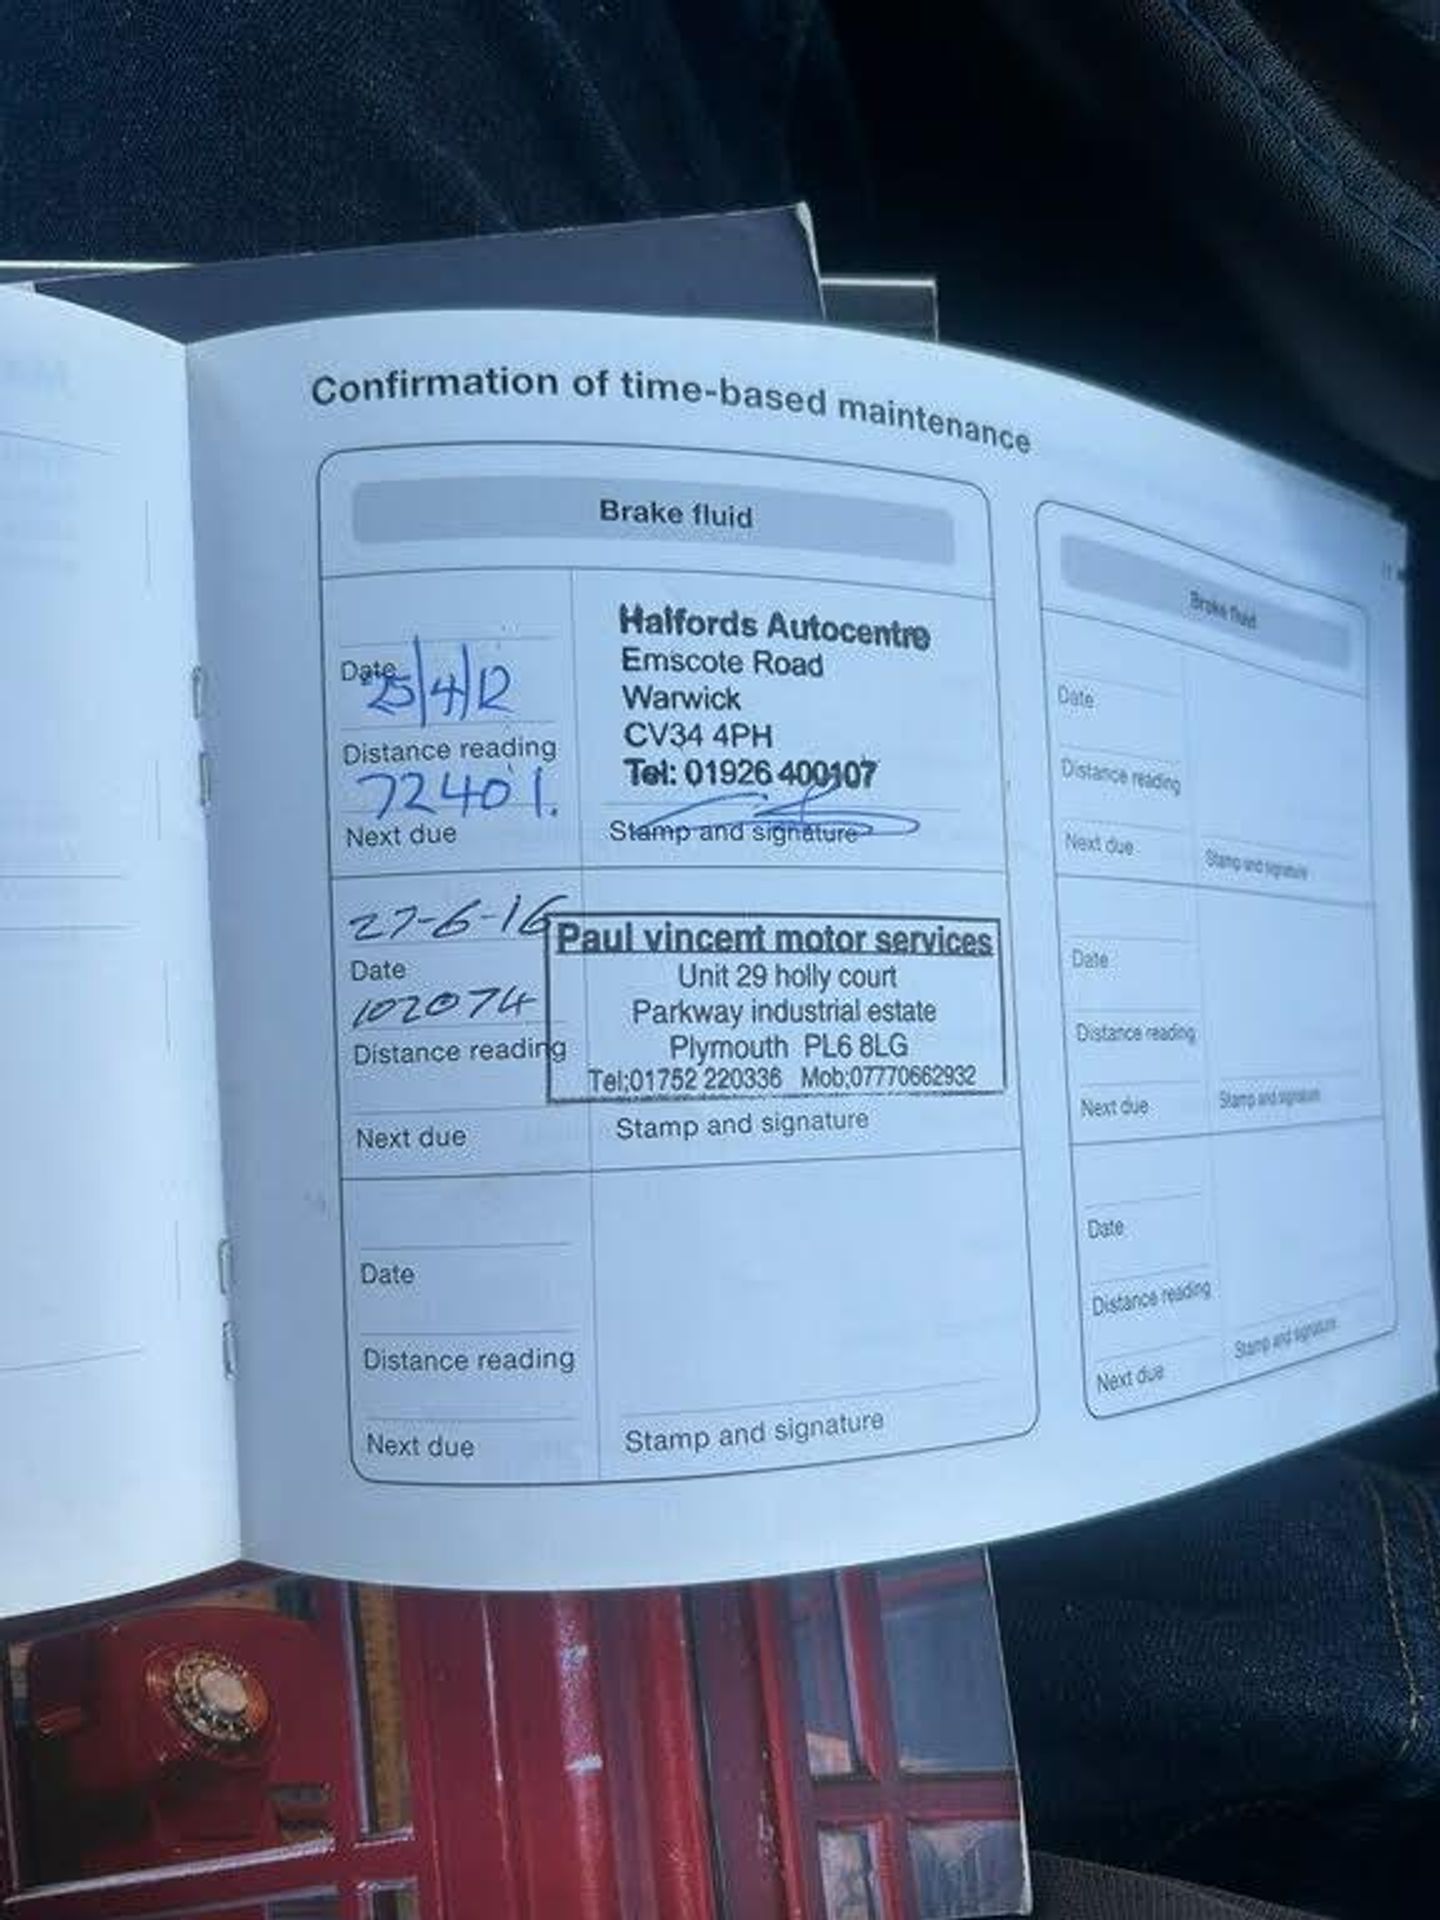 Confirmation of time-based maintenance
Brake fluid
Date
25/4/12
Distance reading
72401.
Next due
Halfords Autocentre
Emscote Road
Warwick
CV34 4PH
Tel: 01926 400107
Stamp and signature
27-6-16
Date
102074
Distance reading
Next due
Paul vincent motor services
Unit 29 holly court
Parkway industrial estate
Plymouth PL6 8LG
Tel;01752 220336 Mob;07770662932
Stamp and signature
Date
Distance reading
Next due
Stamp and signature
Brake fluid
Date
Distance reading
Next due
Stamp and signature
Date
Distance reading
Next due
Stamp and signature
Date
Distance reading
Next due
Stamp and signature